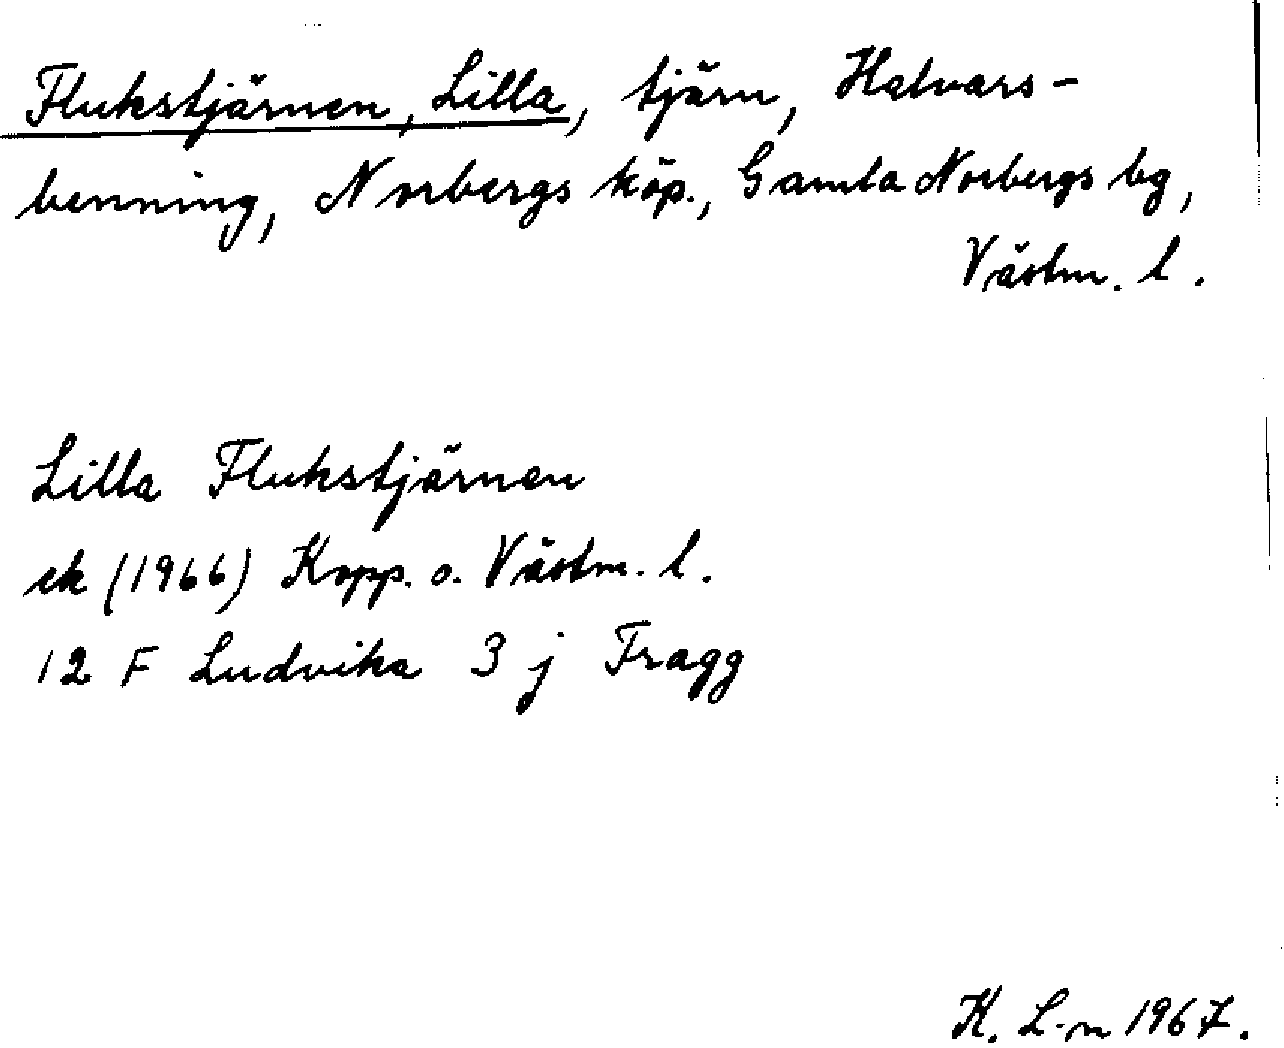 Flukstjärnen, Lilla, tjärn, Halvars-
benning, Norbergs köp., Gamla Norbergs bg,
Västm. l.
Lilla Flukstjärnen
ek (1966) Kopp. o. Västm. l.
12 F Ludvika 3 j Tragg
K. L-n 1967.